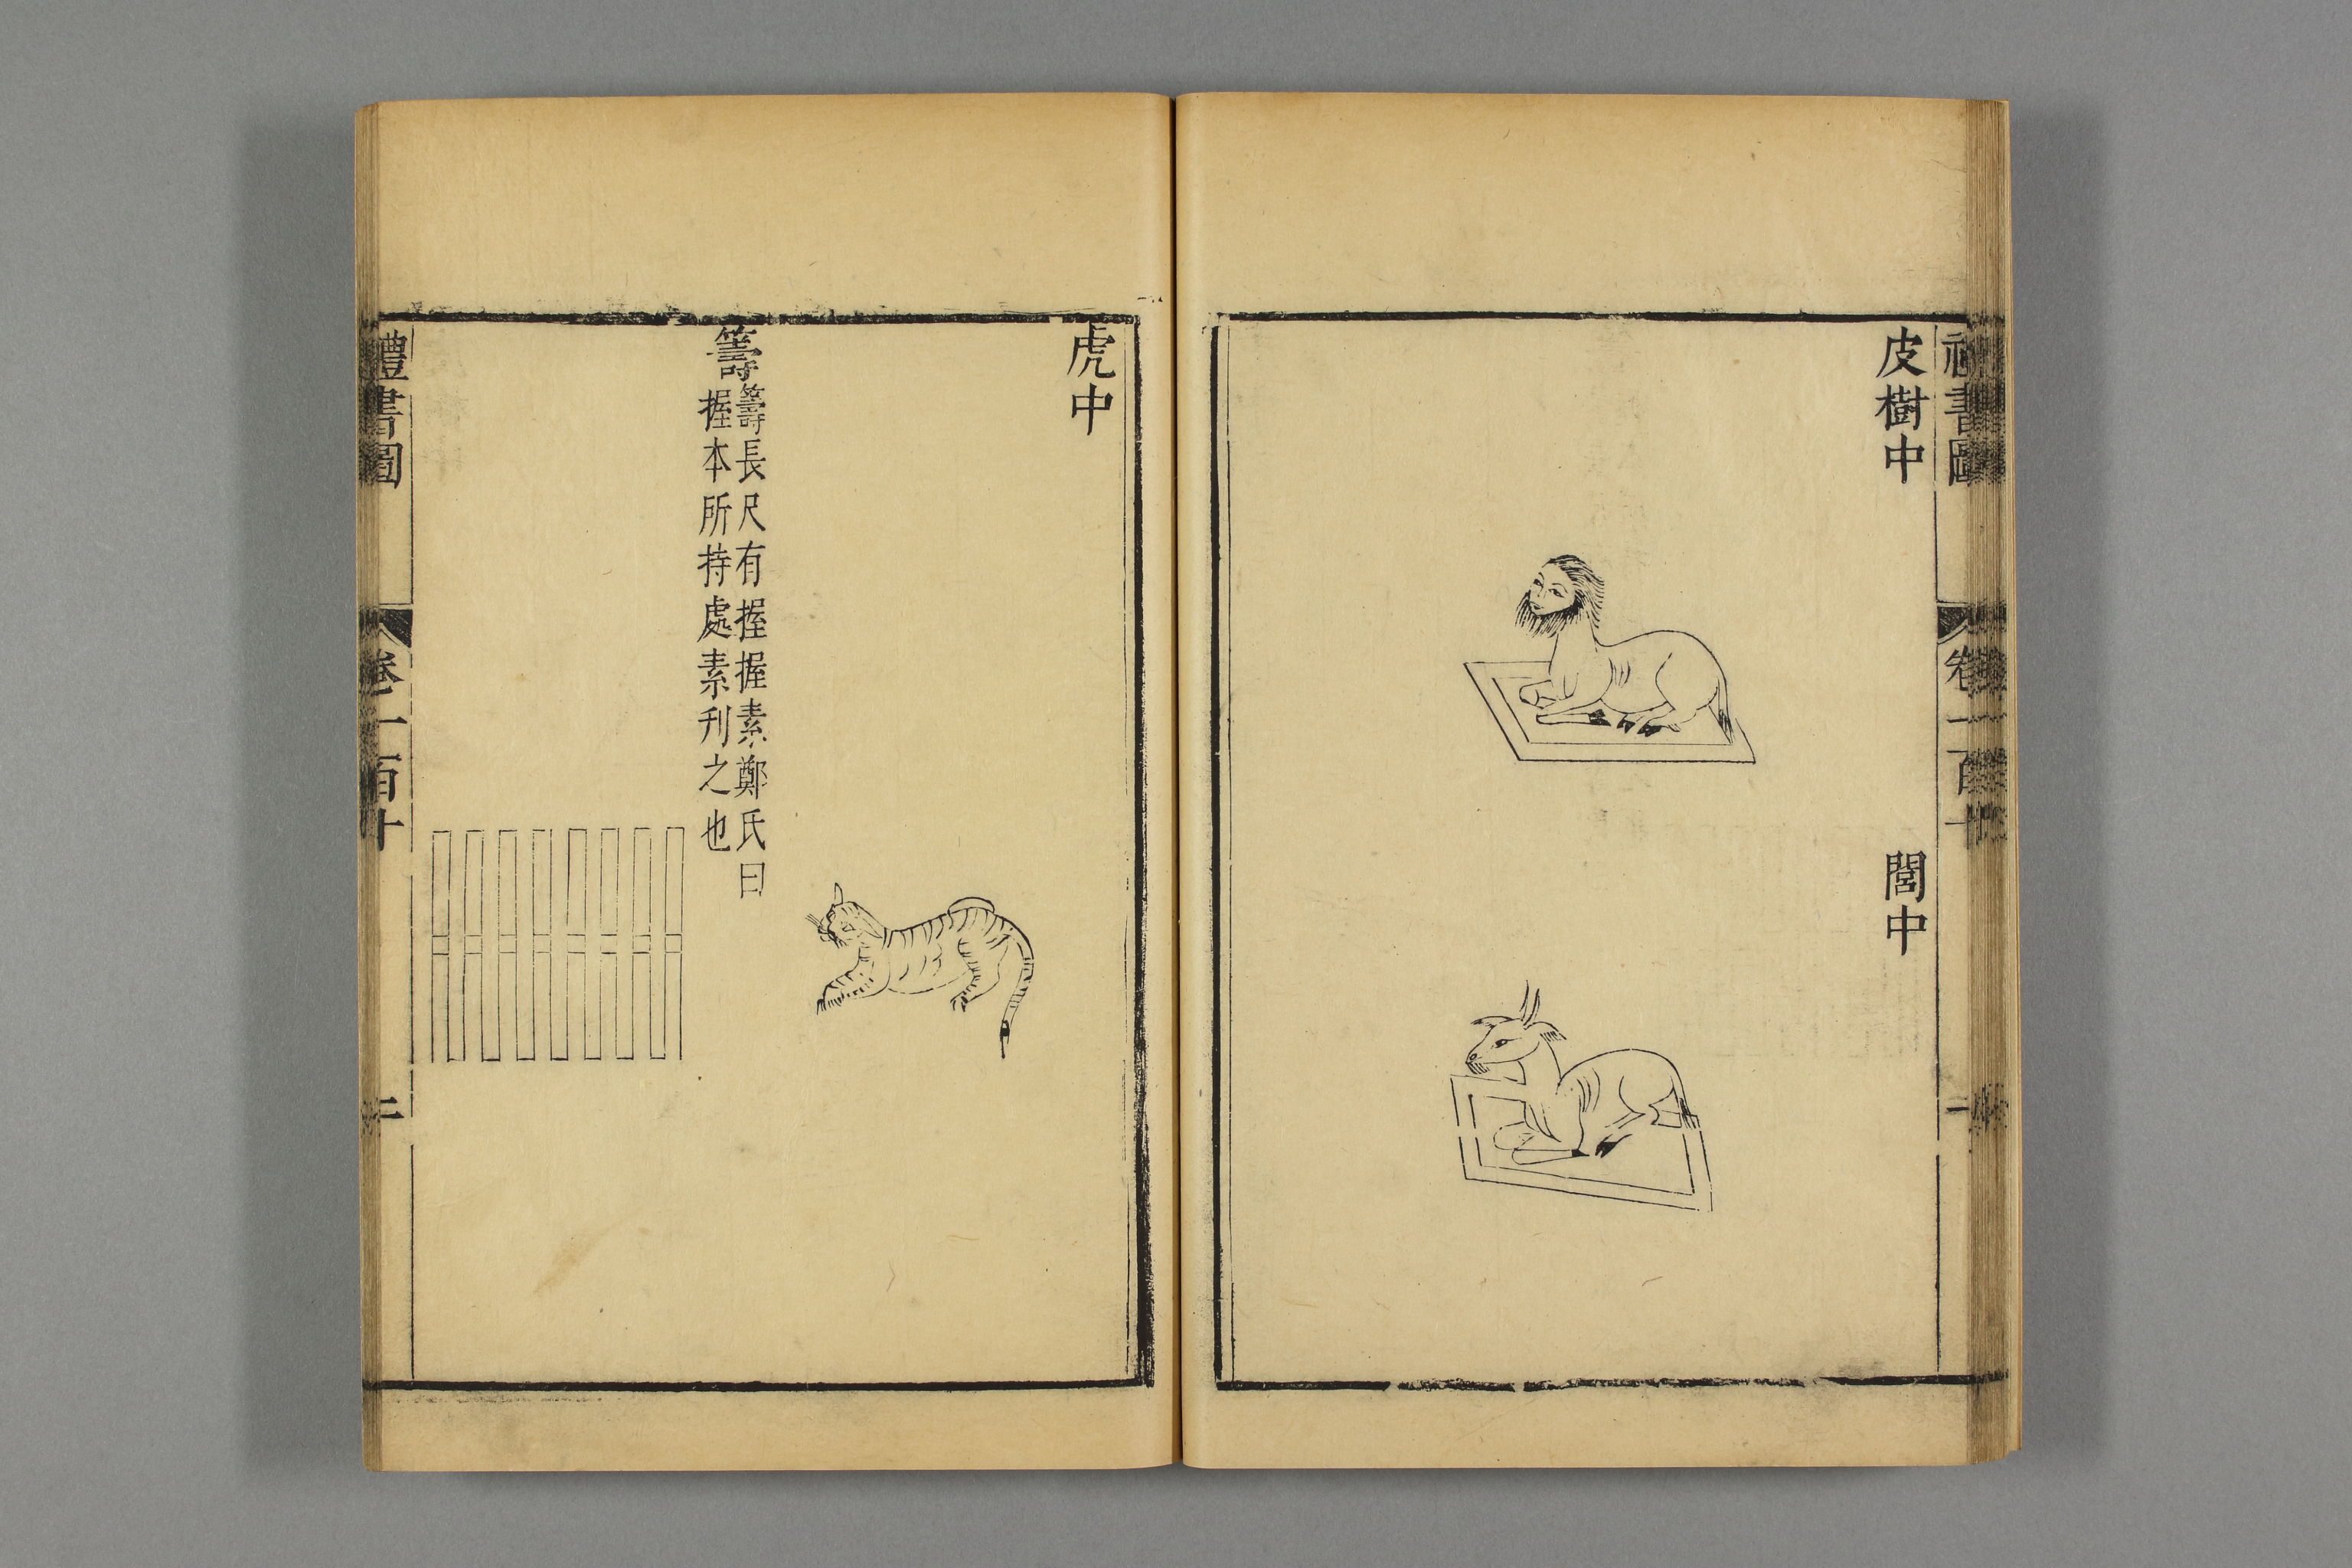 禮書圖 卷一百十 一
皮樹中
閭中
虎中
籌
籌長尺有握握素鄭氏曰
握本所持處素刋之也
禮書圖 卷一百十 二